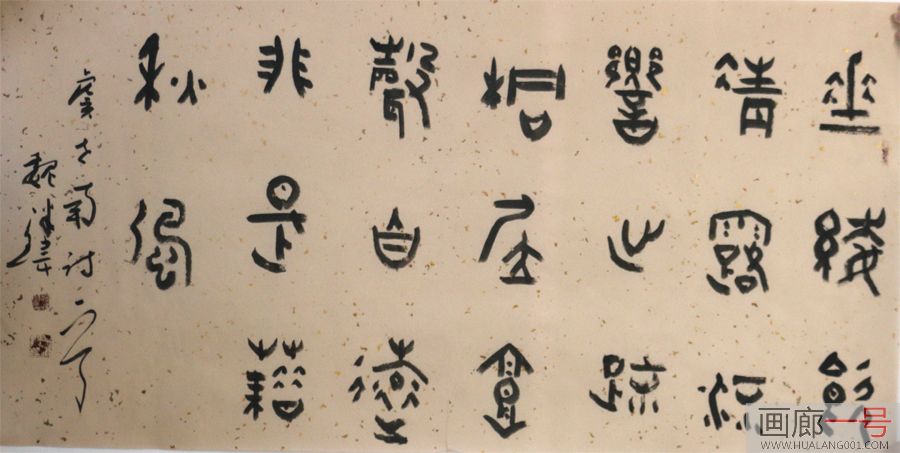 垂緌飲
清露流
響出疏
桐居高
聲自遠
非是藉
秋風
虞世南詩一首
魏
画廊一号
WWW.HUALANG001.COM